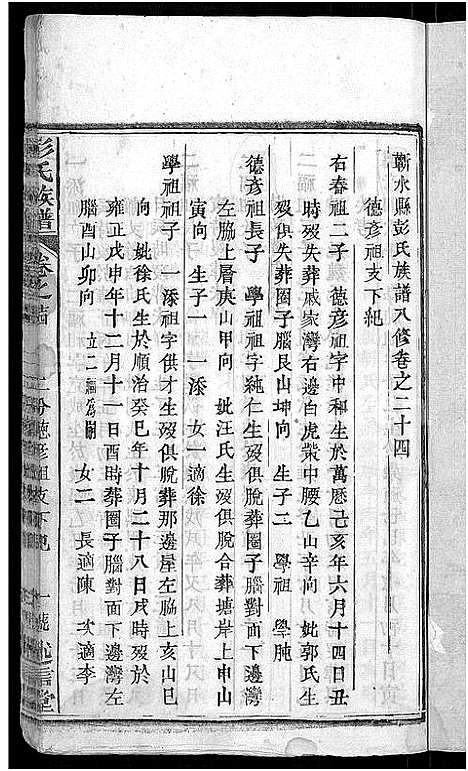 蘄水縣彭氏族譜八修卷之二十四
德彥祖支下紀
右春祖二子 德彥祖字中和生於萬曆己亥年六月十四日丑
時歿失葬戚家灣右邊白虎業中腰乙山辛向 妣郭氏生
歿俱失葬圈子腦艮山坤向 生子二 學祖 學肫
德彥祖長子 學祖祖字純仁生歿俱脫葬圈子腦對面下邊灣
左脇上層庚山甲向 妣汪氏生歿俱脫合葬塘岸上申山
寅向 生子一 一添 女一適徐
學祖祖子 一添祖字供才生歿俱脫葬那邊屋左脇上亥山巳
向 妣徐氏生於順治癸巳年十月二十八日戌時歿於
雍正戊申年十二月十一日酉時葬圈子腦對面下邊灣左
腦酉山卯向 立二福爲嗣 女二 長適陳 次適李
彭氏族譜 卷之廿四 二分德彥祖支下紀 一 述信堂